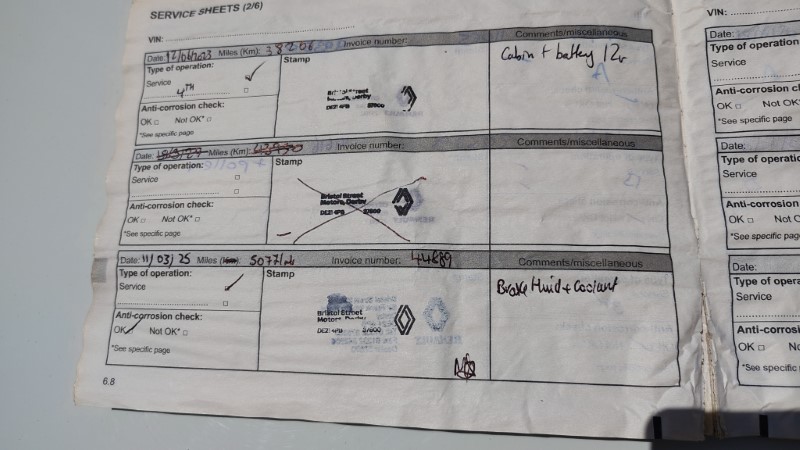 SERVICE SHEETS (2/6)
VIN:
Date: 12/06/2023 Miles (Km): 38206 Invoice number: Comments/miscellaneous
Type of operation: ✓
Service
4TH
Stamp
Bristol Street
Motors, Derby
DE21 4PB 57600
Cabin + battery 12v
Anti-corrosion check:
OK □ Not OK* □
*See specific page
Date: Miles (Km): Invoice number: Comments/miscellaneous
Type of operation:
Service □
□
Stamp
Bristol Street
Motors, Derby
DE21 4PB 57600
Anti-corrosion check:
OK □ Not OK* □
*See specific page
Date: 11/03/25 Miles (Km): Invoice number: Comments/miscellaneous
Type of operation:
Service ✓
□
Stamp
Bristol Street
Motors, Derby
DE21 4PB 57600
Brake fluid + Coolant
Anti-corrosion check:
OK ✓ Not OK* □
*See specific page
6.8
VIN:
Date:
Type of operation
Service
OK □ Not OK
*See specific page
Date:
Type of operatio
Service
Anti-corrosion
OK □ Not O
*See specific pag
Date:
Type of opera
Service
Anti-corrosi
OK □ No
*See specific